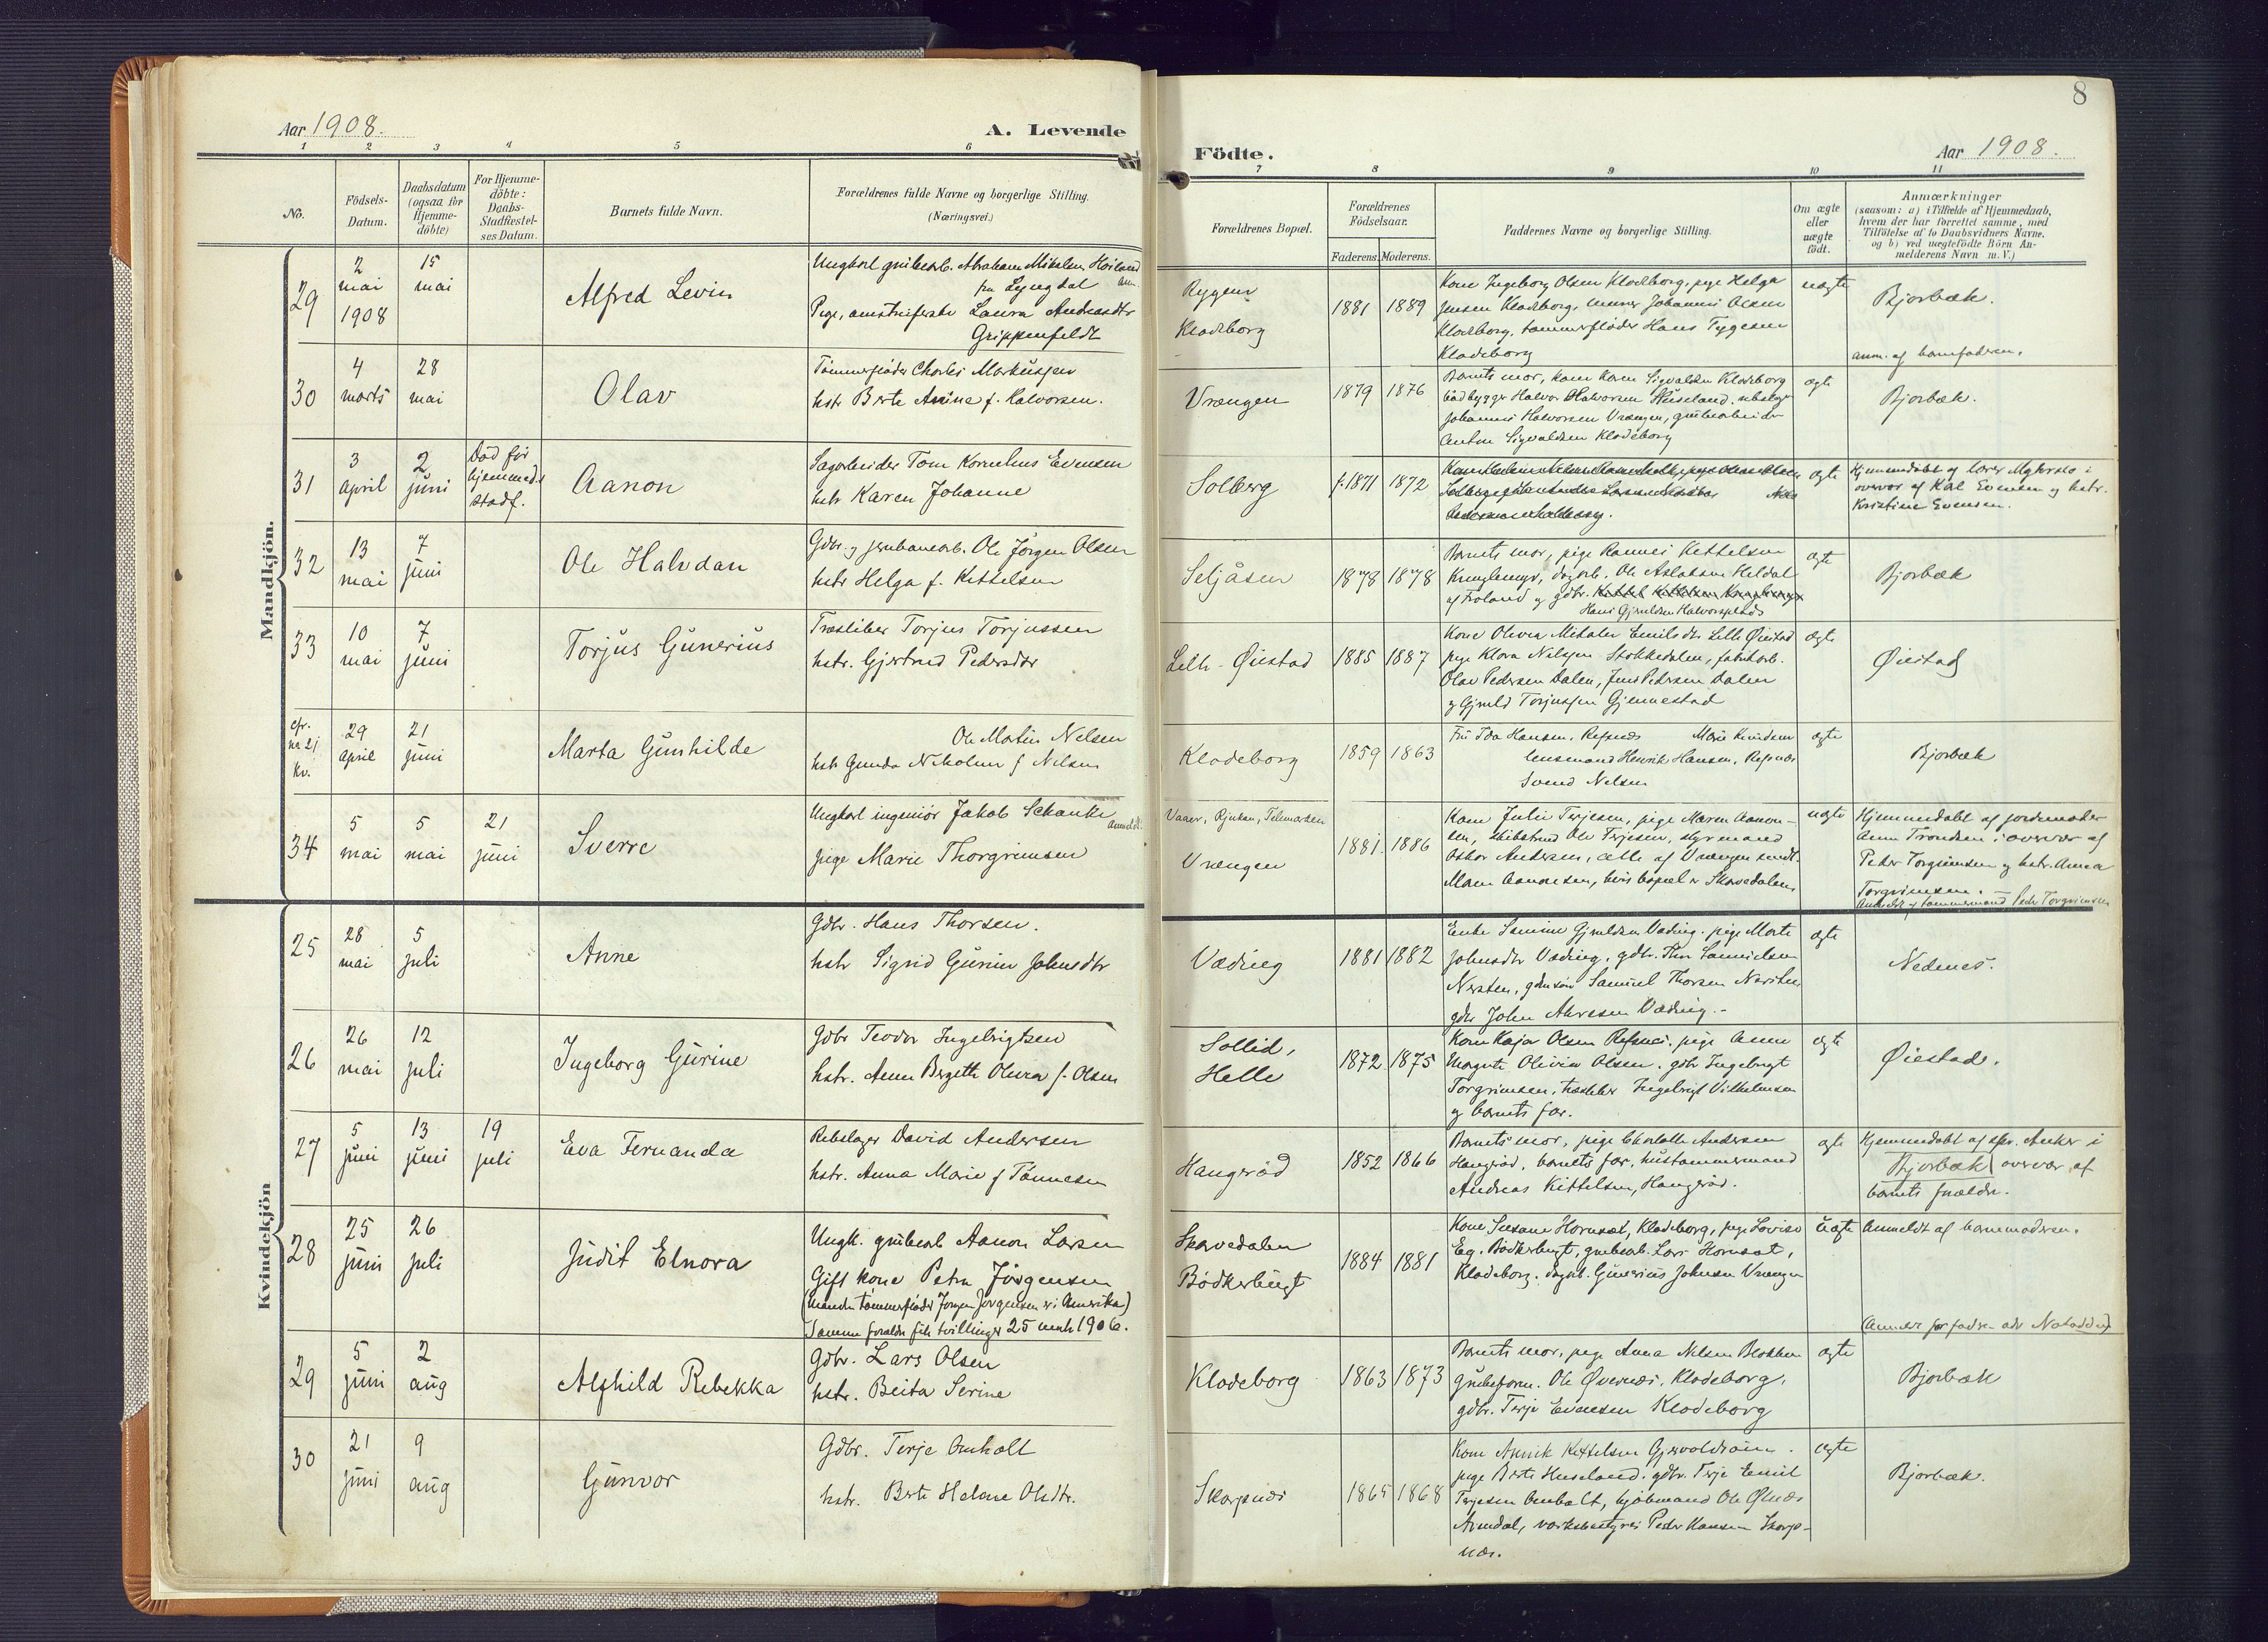 Aar 1908.
A. Levende
1 2 3 4 5 6
No.
Födsels-
Datum.
Daabsdatum
(ogsaa for
Hjemme-
döbte)
For Hjemme-
döbte:
Daabs-
Stadfæstel-
ses Datum.
Barnets fulde Navn.
Forældrenes fulde Navne og borgerlige Stilling.
(Næringsvei.)
Mandkjön.
29
2
mai
1908
15
mai
Alfred Levin
Ungkarl grubearb. Abraham Mikalsen Høiland
fra Lyngdal
Pige, Laura Andreasdtr
Grippenfeldt
30
4
marts
28
mai
Olav
Tømmerfløder Charles Markussen
hstr Berte Anine f. Halvorsen.
31
3
april
2
juni
Död för
hjemmed.
stadf.
Aanon
Sagarbeider Tom Kornelius Evensen
hstr Karen Johanne
32
13
mai
7
juni
Ole Halvdan
Gdbr. og jernbanearb. Ole Jörgen Olsen
hstr Helga f. Kettelsen
33
10
mai
7
juni
Torjus Gunerius
Træsliber Torjus Torjussen
hstr. Gjertrud Pedersdtr
cfr.
no 21
kv.
29
april
21
juni
Marta Gunhilde
Ole Martin Nelsen
hstr Gunda Nikoline f Nelsen
34
5
mai
5
mai
21
juni
Sverre
Ungkarl ingeniör Jakob Schanke
Anmeldt.
pige Marie Thorgrimsen
Kvindekjön
25
28
mai
5
juli
Anne
Gdbr. Hans Thorsen.
hstr Sigrid Gurine Johnsdtr
26
26
mai
12
juli
Ingeborg Gurine
Gdbr Teodor Ingebrigtsen
hstr. Anne Birgitte Olivia f. Olsen
27
5
juni
13
juni
19
juli
Eva Fernanda
Rebslager David Andersen
hstr. Anna Marie f Tønnesen
28
25
juni
26
juli
Judit Elnora
Ungk. grubearb Aanon Larsen
Gift kone Petra Jörgensen
(Manden tømmerfløder Jörgen Jörgensen er i Amerika)
Samme forældre fik tvillinger 25 1906.
29
5
juni
2
aug
Alfhild Rebekka
Gdbr. Lars Olsen
hstr. Beita Serine
30
21
juni
9
aug
Gunvor
Gdbr. Terje Omholt
hstr. Berte Helene Olsdtr.
8
Födte.
Aar 1908.
7 8 9 10 11
Forældrenes Bopæl.
Forældrenes
Födselsaar.
Faderens. Moderens.
Faddernes Navne og borgerlige Stilling.
Om ægte
eller
uægte
födt.
Anmærkninger
(saasom: a) i Tilfælde af Hjemmedaab,
hvem der har forrettet samme, med
Tilföielse af to Daabsvidners Navne.
og b) ved uægtefödte Börn An-
melderens Navn m. V.)
Rygene
Klodeborg
1881 1889
Kone Ingeborg Olsen Klodeborg, pige Helga
Jensen Klodeborg, murer Johannes Olsen
Klodeborg, tømmerfløder Hans Tygesen
Klodeborg
uægte
Bjorbæk.
anm. af barnefaderen.
Vrængen
1879 1876
Barnets mor, kone Karen Sigvaldsen Klodeborg
baadbygger Halvor Halvorsen Huseland.
Johannes Halvorsen Vrængen, grubearbeider
Anton Sigvaldsen Klodeborg
ægte
Bjorbæk.
Solberg
f.1871 1872
ægte
Hjemmedöbt af lærer i
overvær af Kal Evensen og hstr.
Kristine Evensen.
Seljåsen
1878 1878
Barnets mor, pige Rannei Kettelsen
Krøglemyr, dagarb. Ole Aslaksen Heldal
af Froland og gdbr. Kettel Kettelsen Krøglemyr
Hans Gjeruldsen Halvorsplads
ægte
Bjorbæk
Lille-Øiestad
1885 1887
Kone Olivia Mikaler Emilsdtr Lille Øiestad
pige Klara Nelsen Stokkedalen, fabrikarb.
Olav Pedersen Dalen, Jens Pedersen Dalen
og Gjeruld Torjussen Gjennestad
ægte
Øiestad
Klodeborg
1859 1863
Fru Ida Hansen, Refsnes Marie Knudsen
lensmand Henrik Hansen, Refsnes
Svend Nelsen
ægte
Bjorbæk
Vaaer, Rjukan, Telemarken
Vrængen
1881. 1886
Kone Julie Terjesen, pige Maren Aanon-
sen, skibstmd Ole Terjesen, styrmand
Oskar Andersen, alle af Vrængen undt.
Maren Aanonsen, hvis bopæl er Skarvedalen
uægte
Hjemmedöbt af jordemoder
Anne Trondsen i overvær af
Peder Torgrimsen og hstr. Anna
Torgrimsen. —
Anmeldt af tømmermand Peder Torgrimsen
Vædring
1881 1882
Enke Samine Gjeruldsen Vædring. pige Marte
Johnsdtr Vædring, gdbr. Thor Samuelsen
Nersten, gdm.søn Samuel Thorsen Nersten
gdbr John Alversen Vædring. -
ægte
Nedenes.
Sollid,
Helle
1872 1875
Kone Kaja Olsen Refsnes. pige Anne
Margrete Olivia Olsen. gdbr Ingebrigt
Torgrimsen, træsliber Ingebrigt Vilhelmsen
og barnets far.
ægte
Øiestad.
Hangerød
1852 1866
Barnets mor, pige Charlotte Andersen
Hangerød. barnets far, hustømmermand
Andreas Kittelsen, Hangerød.
ægte
Hjemmedöbt af Anker i
Bjorbæk overvær af
barnets forældre.
Skarvedalen
Bödkerbugt
1884 1881
Kone Susane Hornaat, Klodeborg, pige Lovise
Eg. Bödkerbugt, grubearb. Lars Hornaat,
Klodeborg. dagarb. Gunerius Johnsen Vrængen
uægte
Anmeldt af barnemoderen.
Klodeborg
1863 1873
Barnets mor, pige Anna Nilsen Blokken
grubeform. Ole Øvernes. Klodeborg,
gdbr. Terje Evensen Klodeborg
ægte
Bjorbæk
Skarpnes
1865 1868
Kone Annik Kittelsen Gjervoldsöen.
pige Berte Huseland. gdbr. Terje Emil
Terjesen Omholt, kjöbmand Ole Ølnes
Arendal, verksbestyrer Peder Hansen Skarp-
nes.
ægte
Bjorbæk.